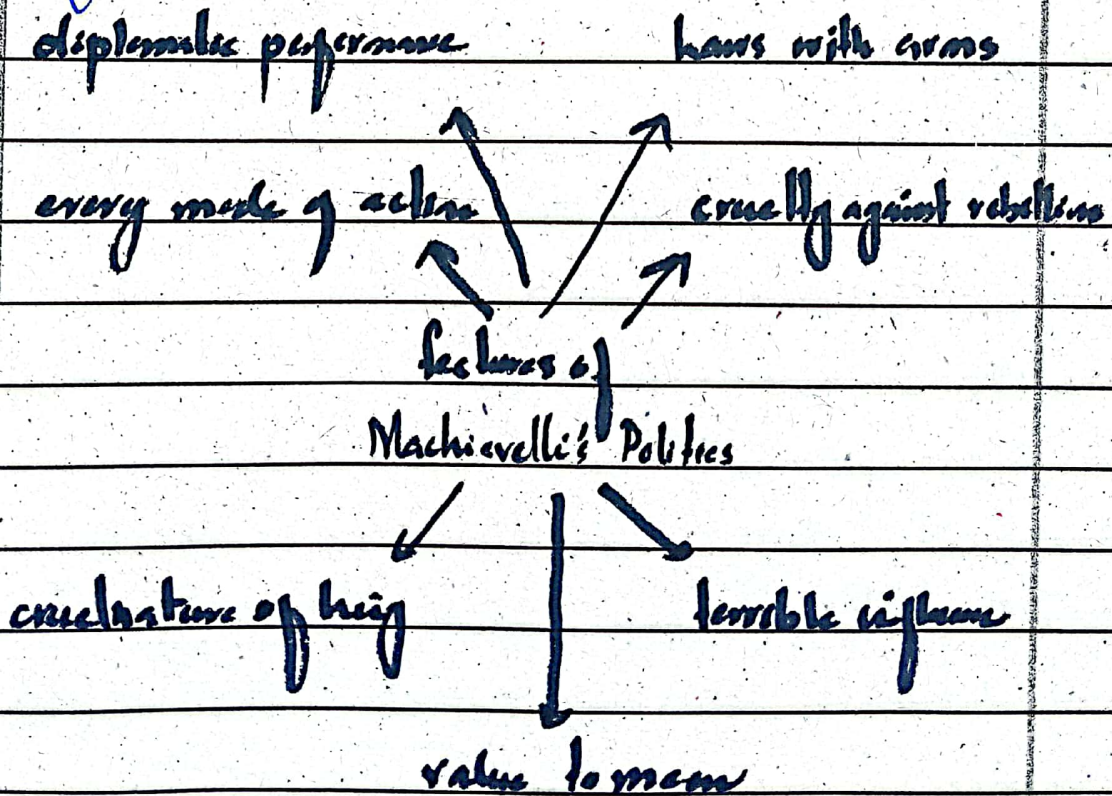 diplomatic performance
laws with arms
every mode of action
cruelty against rebellion
features of
Machievelli's Politics
cruel nature of king
terrible influence
value to